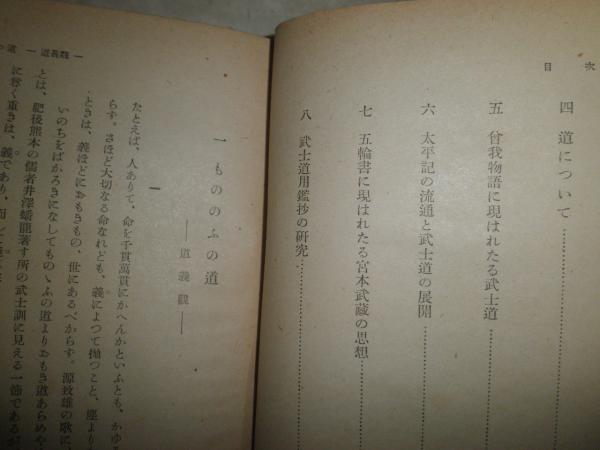 目次
四 道について
五 曾我物語に現はれたる武士道
六 太平記の流通と武士道の展開
七 五輪書に現はれたる宮本武藏の思想
八 武士道用鑑抄の研究
一 もののふの道
―道義觀―
一
たとえば、人ありて、命を千貫萬貫にかへんかといふとも、かゆる
らず。さほど大切なる命なれども、義によつて抛つこと、塵より
ときは、義ほどにおもきもの、世にあるべからず。源致雄の歌に、
いのちをばかろきになしてものゝふの道よりおもき道あらめや
とは、肥後熊本の儒者井澤蟠龍著す所の武士訓に見える一節であるが
に尊く重きは、義であり、
道 ―道義觀―